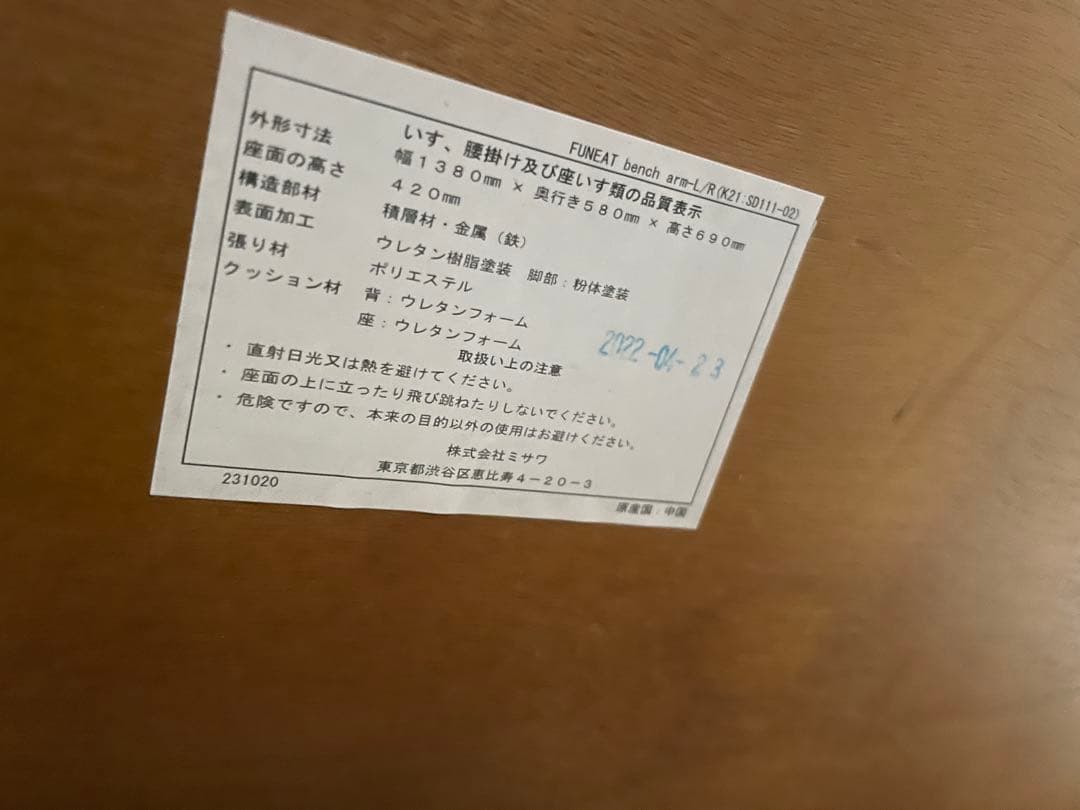 FUNEAT bench arm-L/R(K21:SD111-02)
いす、腰掛け及び座いす類の品質表示
外形寸法 幅1380㎜ × 奥行き580㎜ × 高さ690㎜
座面の高さ 420㎜
構造部材 積層材・金属（鉄）
表面加工 ウレタン樹脂塗装 脚部：粉体塗装
張り材 ポリエステル
クッション材 背：ウレタンフォーム
座：ウレタンフォーム
2022-04-23
取扱い上の注意
・直射日光又は熱を避けてください。
・座面の上に立ったり飛び跳ねたりしないでください。
・危険ですので、本来の目的以外の使用はお避けください。
株式会社ミサワ
東京都渋谷区恵比寿4－20－3
231020
原産国：中国